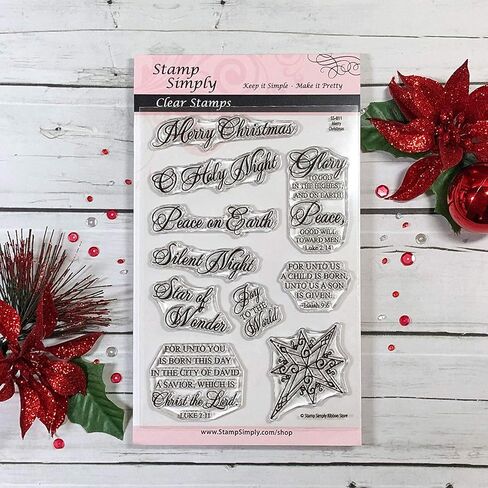 Stamp
Simply
Keep it Simple - Make it Pretty
Clear Stamps
SS-011
Merry
Christmas
Merry Christmas
O Holy Night
Peace on Earth
Silent Night
Star of
Wonder
Joy
TO THE
World
Glory
TO GOD
IN THE HIGHEST,
AND ON EARTH
Peace,
GOOD WILL
TOWARD MEN.
Luke 2:14
FOR UNTO US
A CHILD IS BORN,
UNTO US A SON
IS GIVEN.
Isaiah 9:6
FOR UNTO YOU
IS BORN THIS DAY
IN THE CITY OF DAVID
A SAVIOR, WHICH IS
Christ the Lord.
LUKE 2:11
© Stamp Simply Ribbon Store
www.StampSimply.com/shop